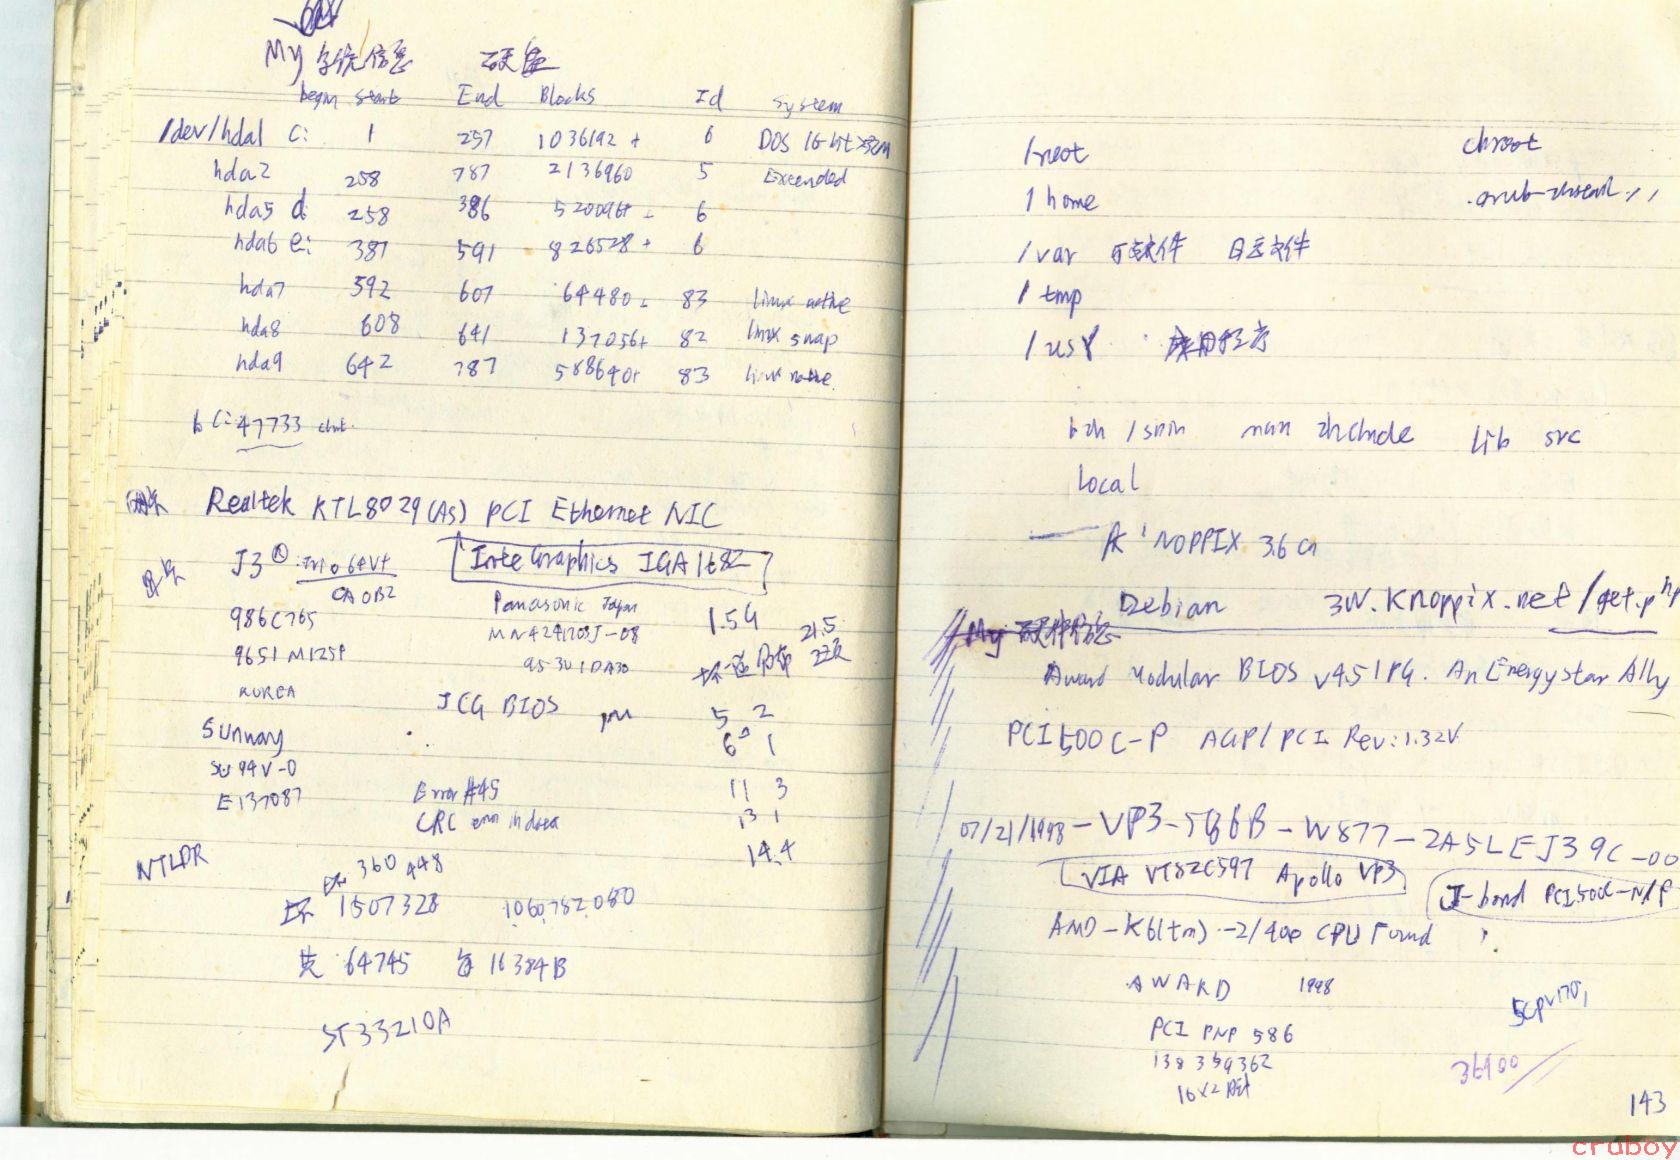 My 系统信息 硬盘
begin start End Blocks Id System
/dev/hda1 C: 1 257 1036192+ 6 DOS 16-bit >32M
hda2 258 787 2136960 5 Extended
hda5 d: 258 386 520096+ 6
hda6 e: 387 591 826528+ 6
hda7 592 607 64480 83 linux native
hda8 608 641 137056+ 82 linux swap
hda9 642 787 588640+ 83 linux native
C: 47733
网卡 Realtek RTL8029(As) PCI Ethernet NIC
显卡 S3 ® Trio64V+ InteGraphics IGA1682
OA0B2
986C765 Panasonic Japan 1.5G
9651 M125P MN4291703J-08 21.5
KOREA 953U1DA30
JCG BIOS 5 2
Sunway 6 1
SU 94V-0
E137087 Error #45 11 3
CRC error in data 13 1
NTLDR 14.4
360448
坏 1507328 1,060,782,080
共 64745 每 16384B
ST33210A
/root chroot
/home
/var 可变文件 日志文件
/tmp
/usr 应用程序
bin /sbin man include lib src
local
KNOPPIX 3.6
Debian 3W.Knoppix.net/get.php
My 硬件信息
Award Modular BIOS v4.51PG. An Energy Star Ally
PCI500C-P AGP/PCI Rev:1.32V
07/21/1998-VP3-586B-W877-2A5LEJ39C-00
VIA VT82C597 Apollo VP3 J-bond PCI500C-N/P
AMD-K6(tm)-2/400 CPU Found
AWARD 1998
PCI PNP 586
138359362
36900
143
cruboy